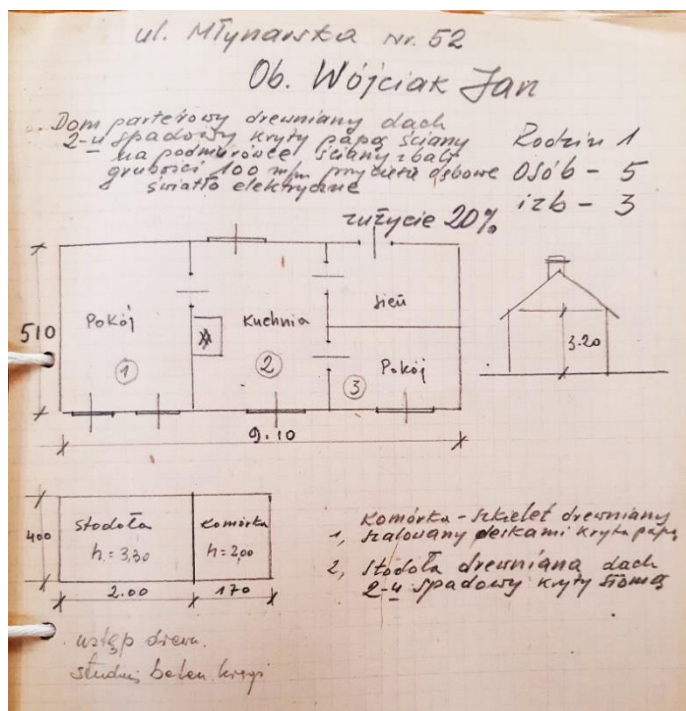 ul. Młynarska nr. 52
Ob. Wójciak Jan
Dom parterowy drewniany dach
2-u spadowy kryty papą ściany
na podmurówce ściany z bali
grubości 100 m/m przyciesi dębowe
światło elektryczne
Rodzin 1
osób - 5
izb - 3
zużycie 20%
Pokój
1
Kuchnia
2
sień
3
Pokój
510
9.10
3.20
400
Stodoła
h = 3,30
Komórka
h = 2,00
2.00
170
Komórka - szkielet drewniany
1, szalowany deskami kryta papą
2, Stodoła drewniana dach
2-u spadowy kryty słomą
ustęp drewn.
studnia beton. kręgi